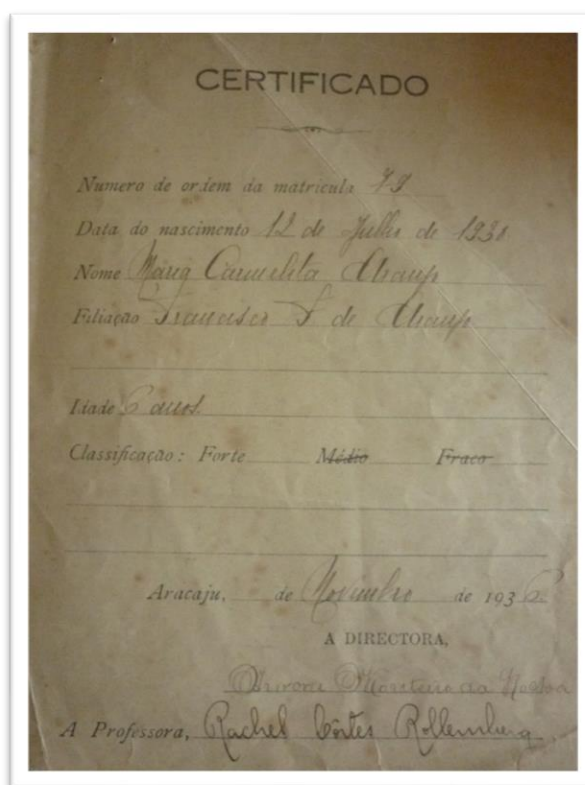 CERTIFICADO
Numero de ordem da matricula 79
Data do nascimento 12 de Julho de 1930
Nome Maria Carmelita Araujo
Filiação Francisco de Araujo
Idade 6 annos
Classificação: Forte Médio Fraco
Aracaju, de Novembro de 1936
A DIRECTORA,
Monteiro da
A Professora, Rachel Côrtes Rollemberg